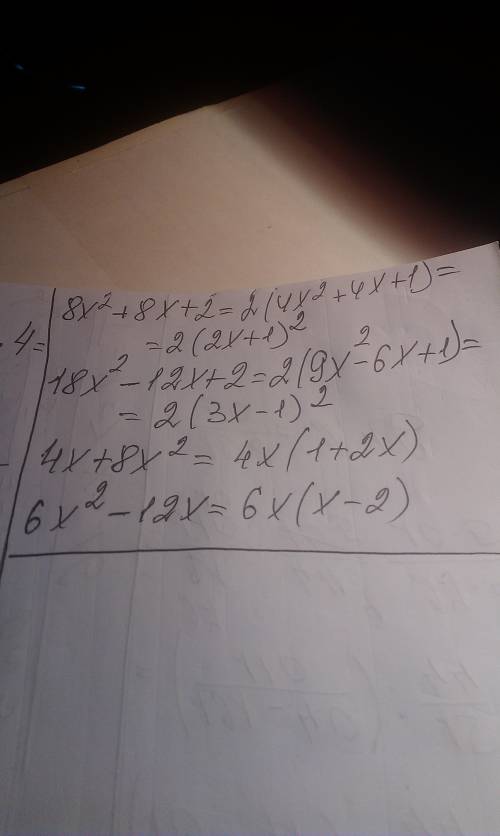 8x² + 8x + 2 = 2(4x² + 4x + 1) =
· 4 =
= 2(2x+1)²
18x² - 12x + 2 = 2(9x² - 6x + 1) =
= 2(3x-1)²
4x + 8x² = 4x(1 + 2x)
6x² - 12x = 6x(x - 2)